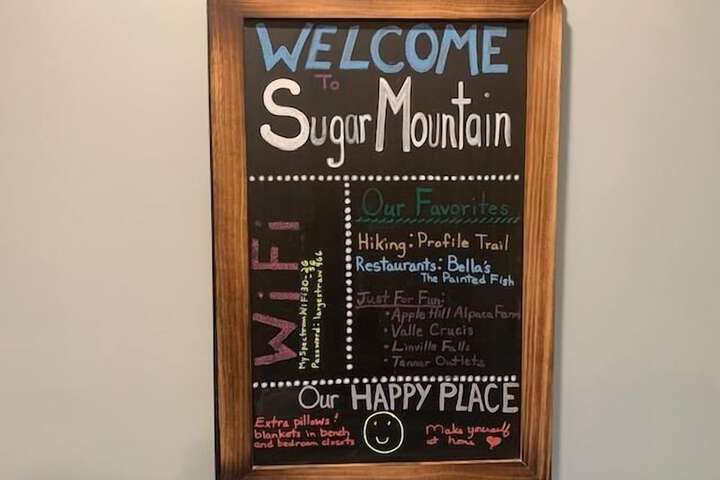 WELCOME
To
Sugar Mountain
WiFi
MySpectrumWiFi30-2G
-5G
Password: largestraw966
Our Favorites
Hiking: Profile Trail
Restaurants: Bella's
The Painted Fish
Just For Fun:
• Apple Hill Alpaca Farm
• Valle Crucis
• Linville Falls
• Tanner Outlets
Our HAPPY PLACE
Extra pillows &
blankets in bench
and bedroom closets
Make yourself
at home